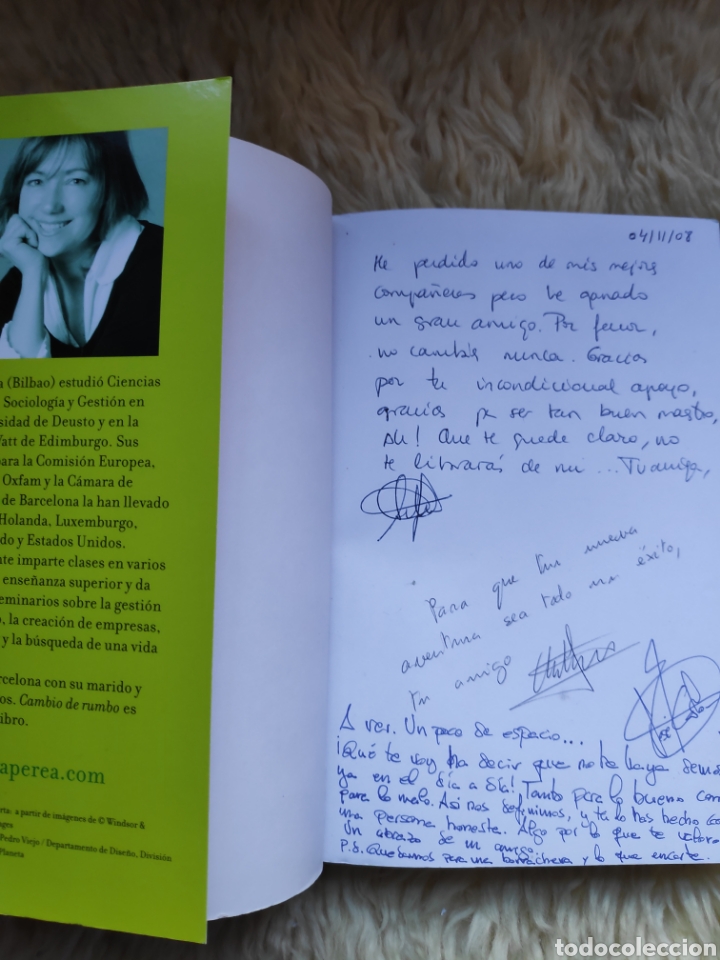 a (Bilbao) estudió Ciencias
Sociología y Gestión en
sidad de Deusto y en la
Watt de Edimburgo. Sus
para la Comisión Europea,
Oxfam y la Cámara de
de Barcelona la han llevado
Holanda, Luxemburgo,
do y Estados Unidos.
te imparte clases en varios
enseñanza superior y da
eminarios sobre la gestión
o, la creación de empresas,
y la búsqueda de una vida
rcelona con su marido y
os. Cambio de rumbo es
libro.
aperea.com
rta: a partir de imágenes de © Windsor &
ages
Pedro Viejo / Departamento de Diseño, División
Planeta
04/11/08
He perdido uno de mis mejores
compañeros pero he ganado
un gran amigo. Por favor,
no cambies nunca. Gracias
por tu incondicional apoyo,
gracias por ser tan buen maestro,
Ah! Que te quede claro, no
te librarás de mi... Tu amiga,
Para que tu nueva
aventura sea todo un éxito,
tu amigo
A ver. Un poco de espacio...
¡Qué te voy ha decir que no te haya
ya en el día a día! Tanto para lo bueno com
para lo malo. Así nos definimos, y tú lo has hecho co
una persona honesta. Algo por lo que te valoro
Un abrazo de un amigo.
P.S. Quedamos para una borrachera y lo que encarte.
todocoleccion